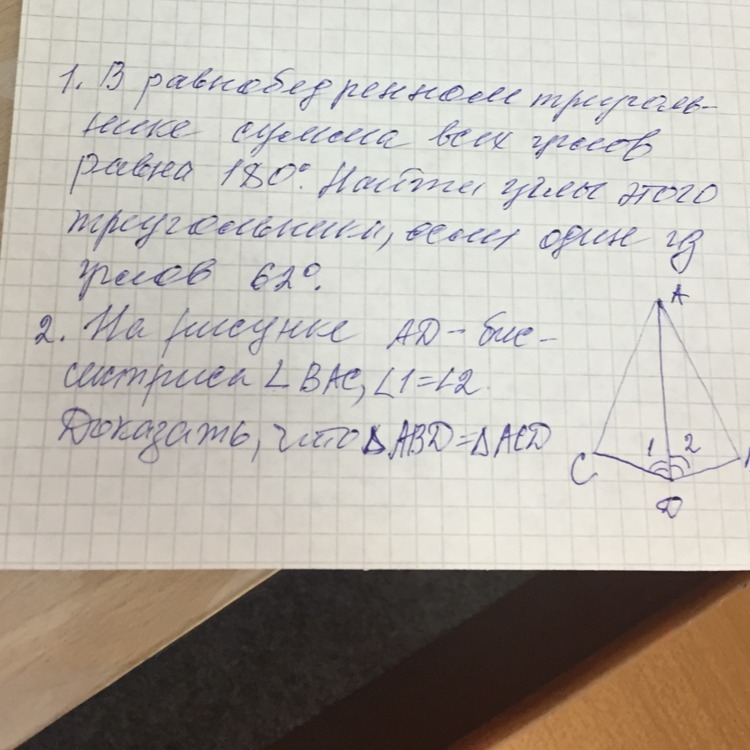 1. В равнобедренном треуголь-
нике сумма всех углов
равна 180°. Найти углы этого
треугольника, если один из
углов 62°.
2. На рисунке AD - бис-
сектриса ∠BAC, ∠1=∠2.
Доказать, что ΔABD=ΔACD
A
1 2
C
D